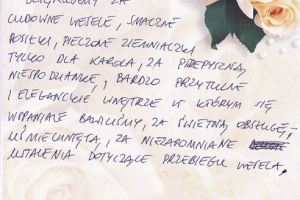 DZIĘKUJEMY ZA
CUDOWNE WESELE, SMACZNE
POSIŁKI, PIECZONE ZIEMNIACZKI
TYLKO DLA KAROLA, ZA PRZEPYSZNĄ
NIESPODZIANKĘ, BARDZO PRZYTULNE
I ELEGANCKIE WNĘTRZE W KTÓRYM SIĘ
WSPANIALE BAWILIŚMY, ZA ŚWIETNĄ OBSŁUGĘ,
UŚMIECHNIĘTĄ, ZA NIEZAPOMNIANE
USTALENIA DOTYCZĄCE PRZEBIEGU WESELA.